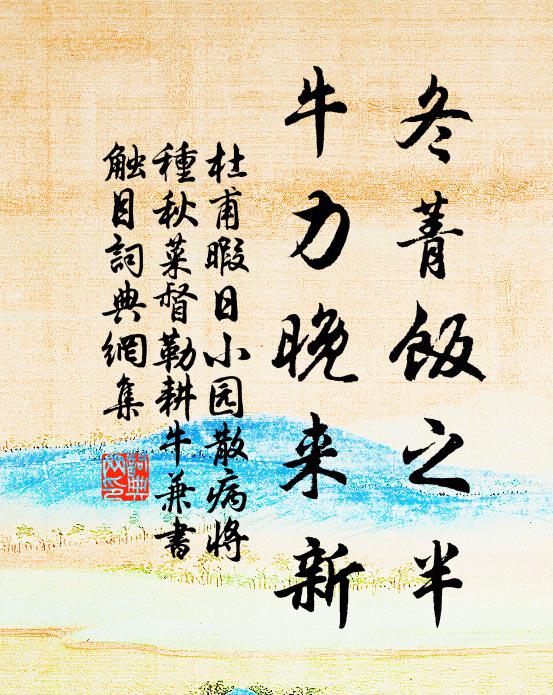 冬菁飯之半
牛力晚来新
杜甫暇日小园散病將
種秋菜督勒耕牛兼書
触目詞典網集